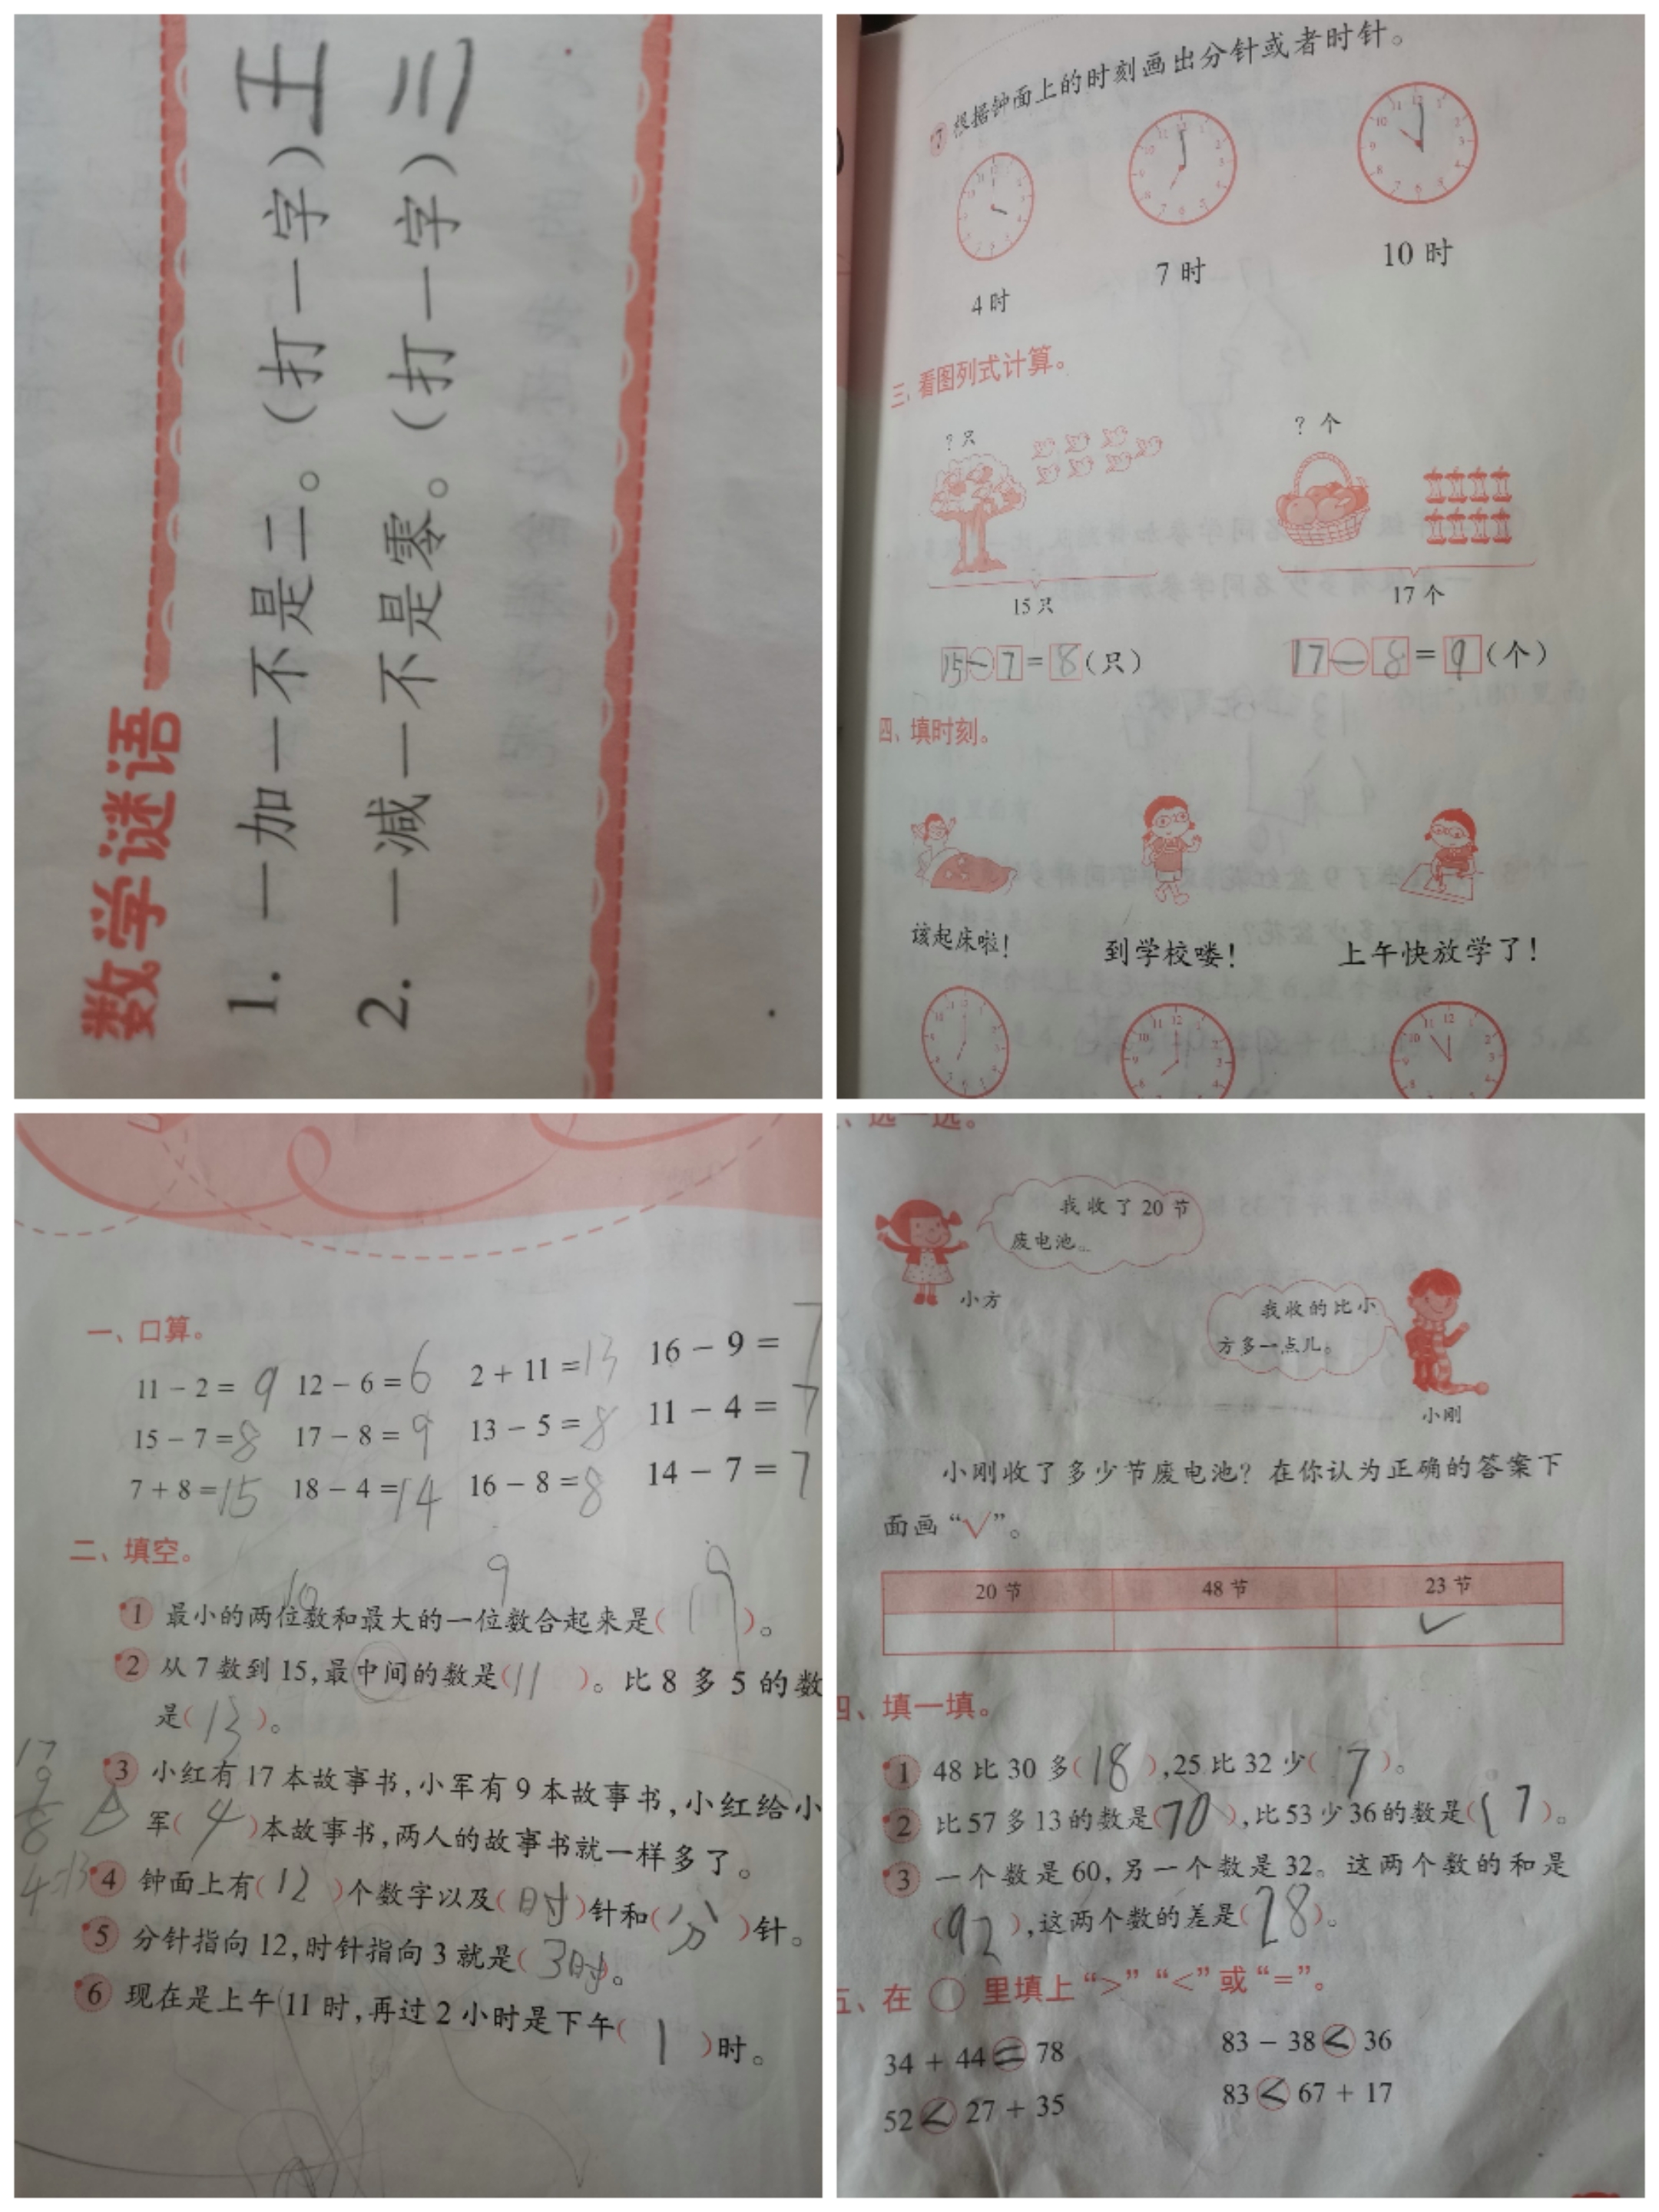 数学谜语
1. 一加一不是二。(打一字)王
2. 一减一不是零。(打一字)三
7 根据钟面上的时刻画出分针或者时针。
4时 7时 10时
三、看图列式计算。
?只 ?个
15只 17个
15-7=8(只) 17-8=9(个)
四、填时刻。
该起床啦! 到学校喽! 上午快放学了!
一、口算。
11-2=9 12-6=6 2+11=13 16-9=7
15-7=8 17-8=9 13-5=8 11-4=7
7+8=15 18-4=14 16-8=8 14-7=7
二、填空。
10 9
1 最小的两位数和最大的一位数合起来是(19)。
2 从7数到15,最中间的数是(11)。比8多5的数
是(13)。
3 小红有17本故事书,小军有9本故事书,小红给小
军(4)本故事书,两人的故事书就一样多了。
4 钟面上有(12)个数字以及(时)针和(分)针。
5 分针指向12,时针指向3就是(3时)。
6 现在是上午11时,再过2小时是下午(1)时。
17
9
8
4
选一选。
我收了20节
废电池。
小方
我收的比小
方多一点儿。
小刚
小刚收了多少节废电池?在你认为正确的答案下
面画“√”。
20节 48节 23节
✓
四、填一填。
1 48比30多(18),25比32少(7)。
2 比57多13的数是(70),比53少36的数是(17)。
3 一个数是60,另一个数是32。这两个数的和是
(92),这两个数的差是(28)。
五、在○里填上“>”“<”或“=”。
34+44=78 83-38<36
52<27+35 83<67+17